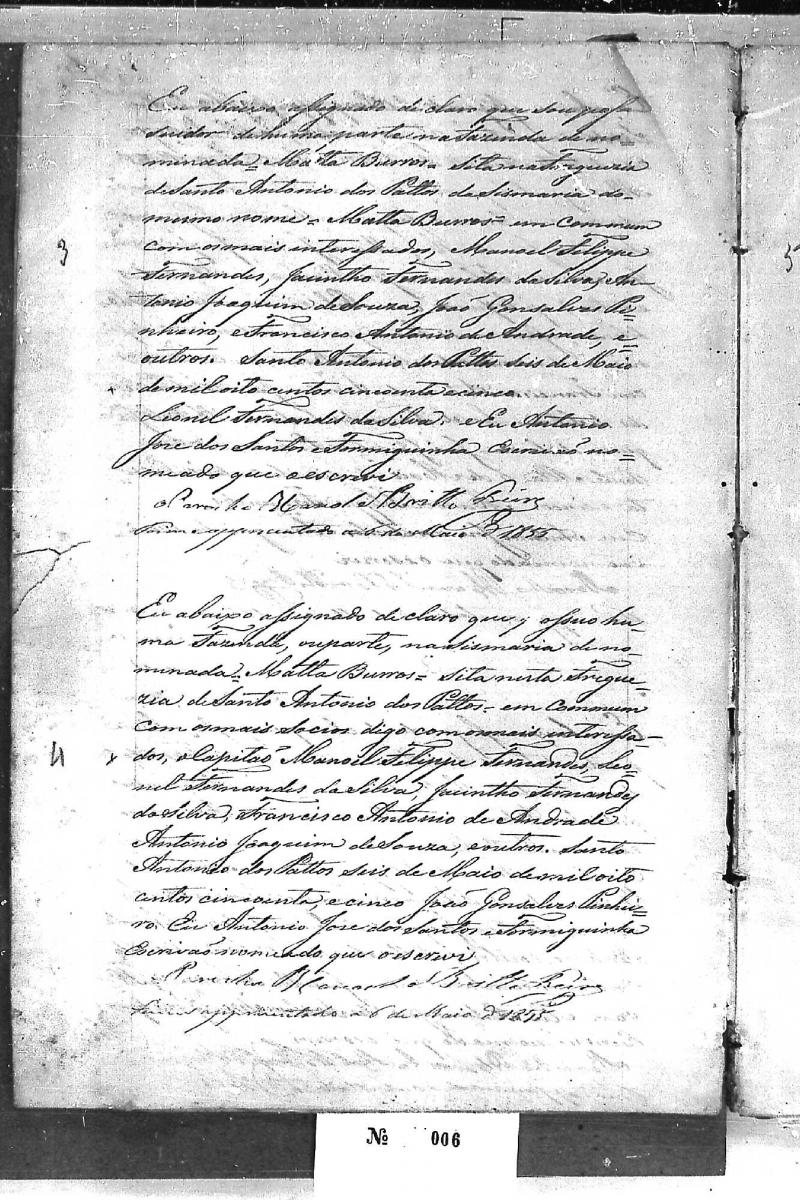 Eu abaixo assignado de claro que sou pos-
suidor de huma parte na Fazenda de no-
minada = Matta Burros = Sita na Freguezia
de Santo Antonio dos Pattos da Sismaria do-
mesmo nome = Matta Burros = em Commum
3 com os mais interessados, Manoel Felippe
Fernandes, Jacintho Fernandes da Silva, An-
tonio Joaquim de Souza, João Gonsalves Pi-
nheiro, e Francisco Antonio de Andrade, e =
outros. Santo Antonio dos Pattos seis de Maio
de mil oito centos cincoenta e cinco
Leonel Fernandes da Silva. e Eu Antonio
Jose dos Santos e Formiguinha Escrivaõ no=
meado que o escrevi
o Parocho Manoel de Britto Freire
apprezentado a 6 de Maio d 1855
Eu abaixo assignado de claro que possuo hu-
ma Fazenda, ou parte, na Sismaria de no-
minada = Matta Burros = Sita nesta Fregue-
zia de Santo Antonio dos Pattos = em Commum
com os mais Socios digo com os mais interessa-
4 dos, o Capitaõ Manoel Felippe Fernandes, Leo-
nel Fernandes da Silva, Jacintho Fernandes
da Silva, Francisco Antonio de Andrade
Antonio Joaquim de Souza, e outros. Santo
Antonio dos Pattos seis de Maio de mil oito
centos cincoenta, e cinco João Gonsalves Pinhei-
ro. Eu Antonio Jose dos Santos e Formiguinha
Escrivaõ nomeado que o escrevi
o Parocho Manoel de Britto Freire
apprezentado a 6 de Maio d 1855
Nº 006